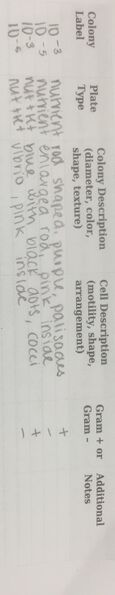 Colony Label Plate Type Colony Description (diameter, color, shape, texture) Cell Description (motility, shape, arrangement) Gram + or Gram - Additional Notes
10-3 nutrient rod shaped, purple palisades +
10-5 nutrient enlarged rod, pink inside -
10-3 nut+Kt blue with black dots, cocci +
10-5 nut+Kt vibrio, pink inside -